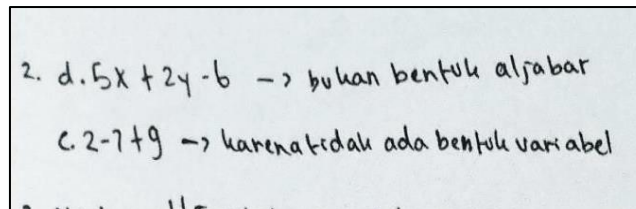 2. d. 5x + 2y - 6 -> bukan bentuk aljabar
c. 2-7+9 -> karena tidak ada bentuk variabel